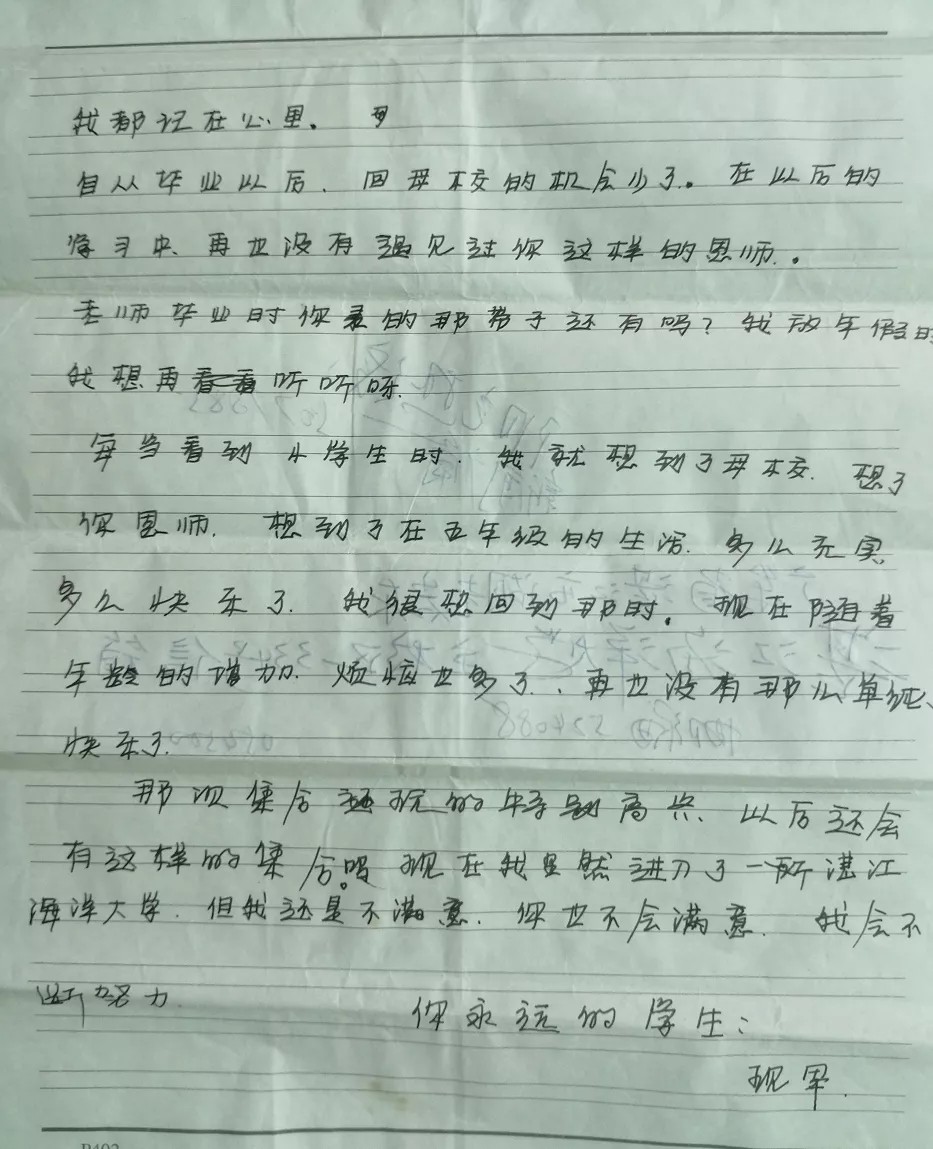 我都记在心里。
自从毕业以后.回母校的机会少了。在以后的
学习中.再也没有遇见过你这样的恩师.。
老师毕业时你录的那带子还有吗?我放年假时
我想再听听呀.
每当看到小学生时.我就想到了母校.想了
你恩师.想到了在五年级的生活.多么充实.
多么快乐了.我很想回到那时。现在随着
年龄的增加.烦恼也多了.,再也没有那么单纯、
快乐了.
那次集合 玩的特别高兴.以后还会
有这样的集合吗 现在我虽然进入了一所湛江
海洋大学.但我还是不满意.你也不会满意.我会不
断努力.
你永远的学生:
现军.
P402